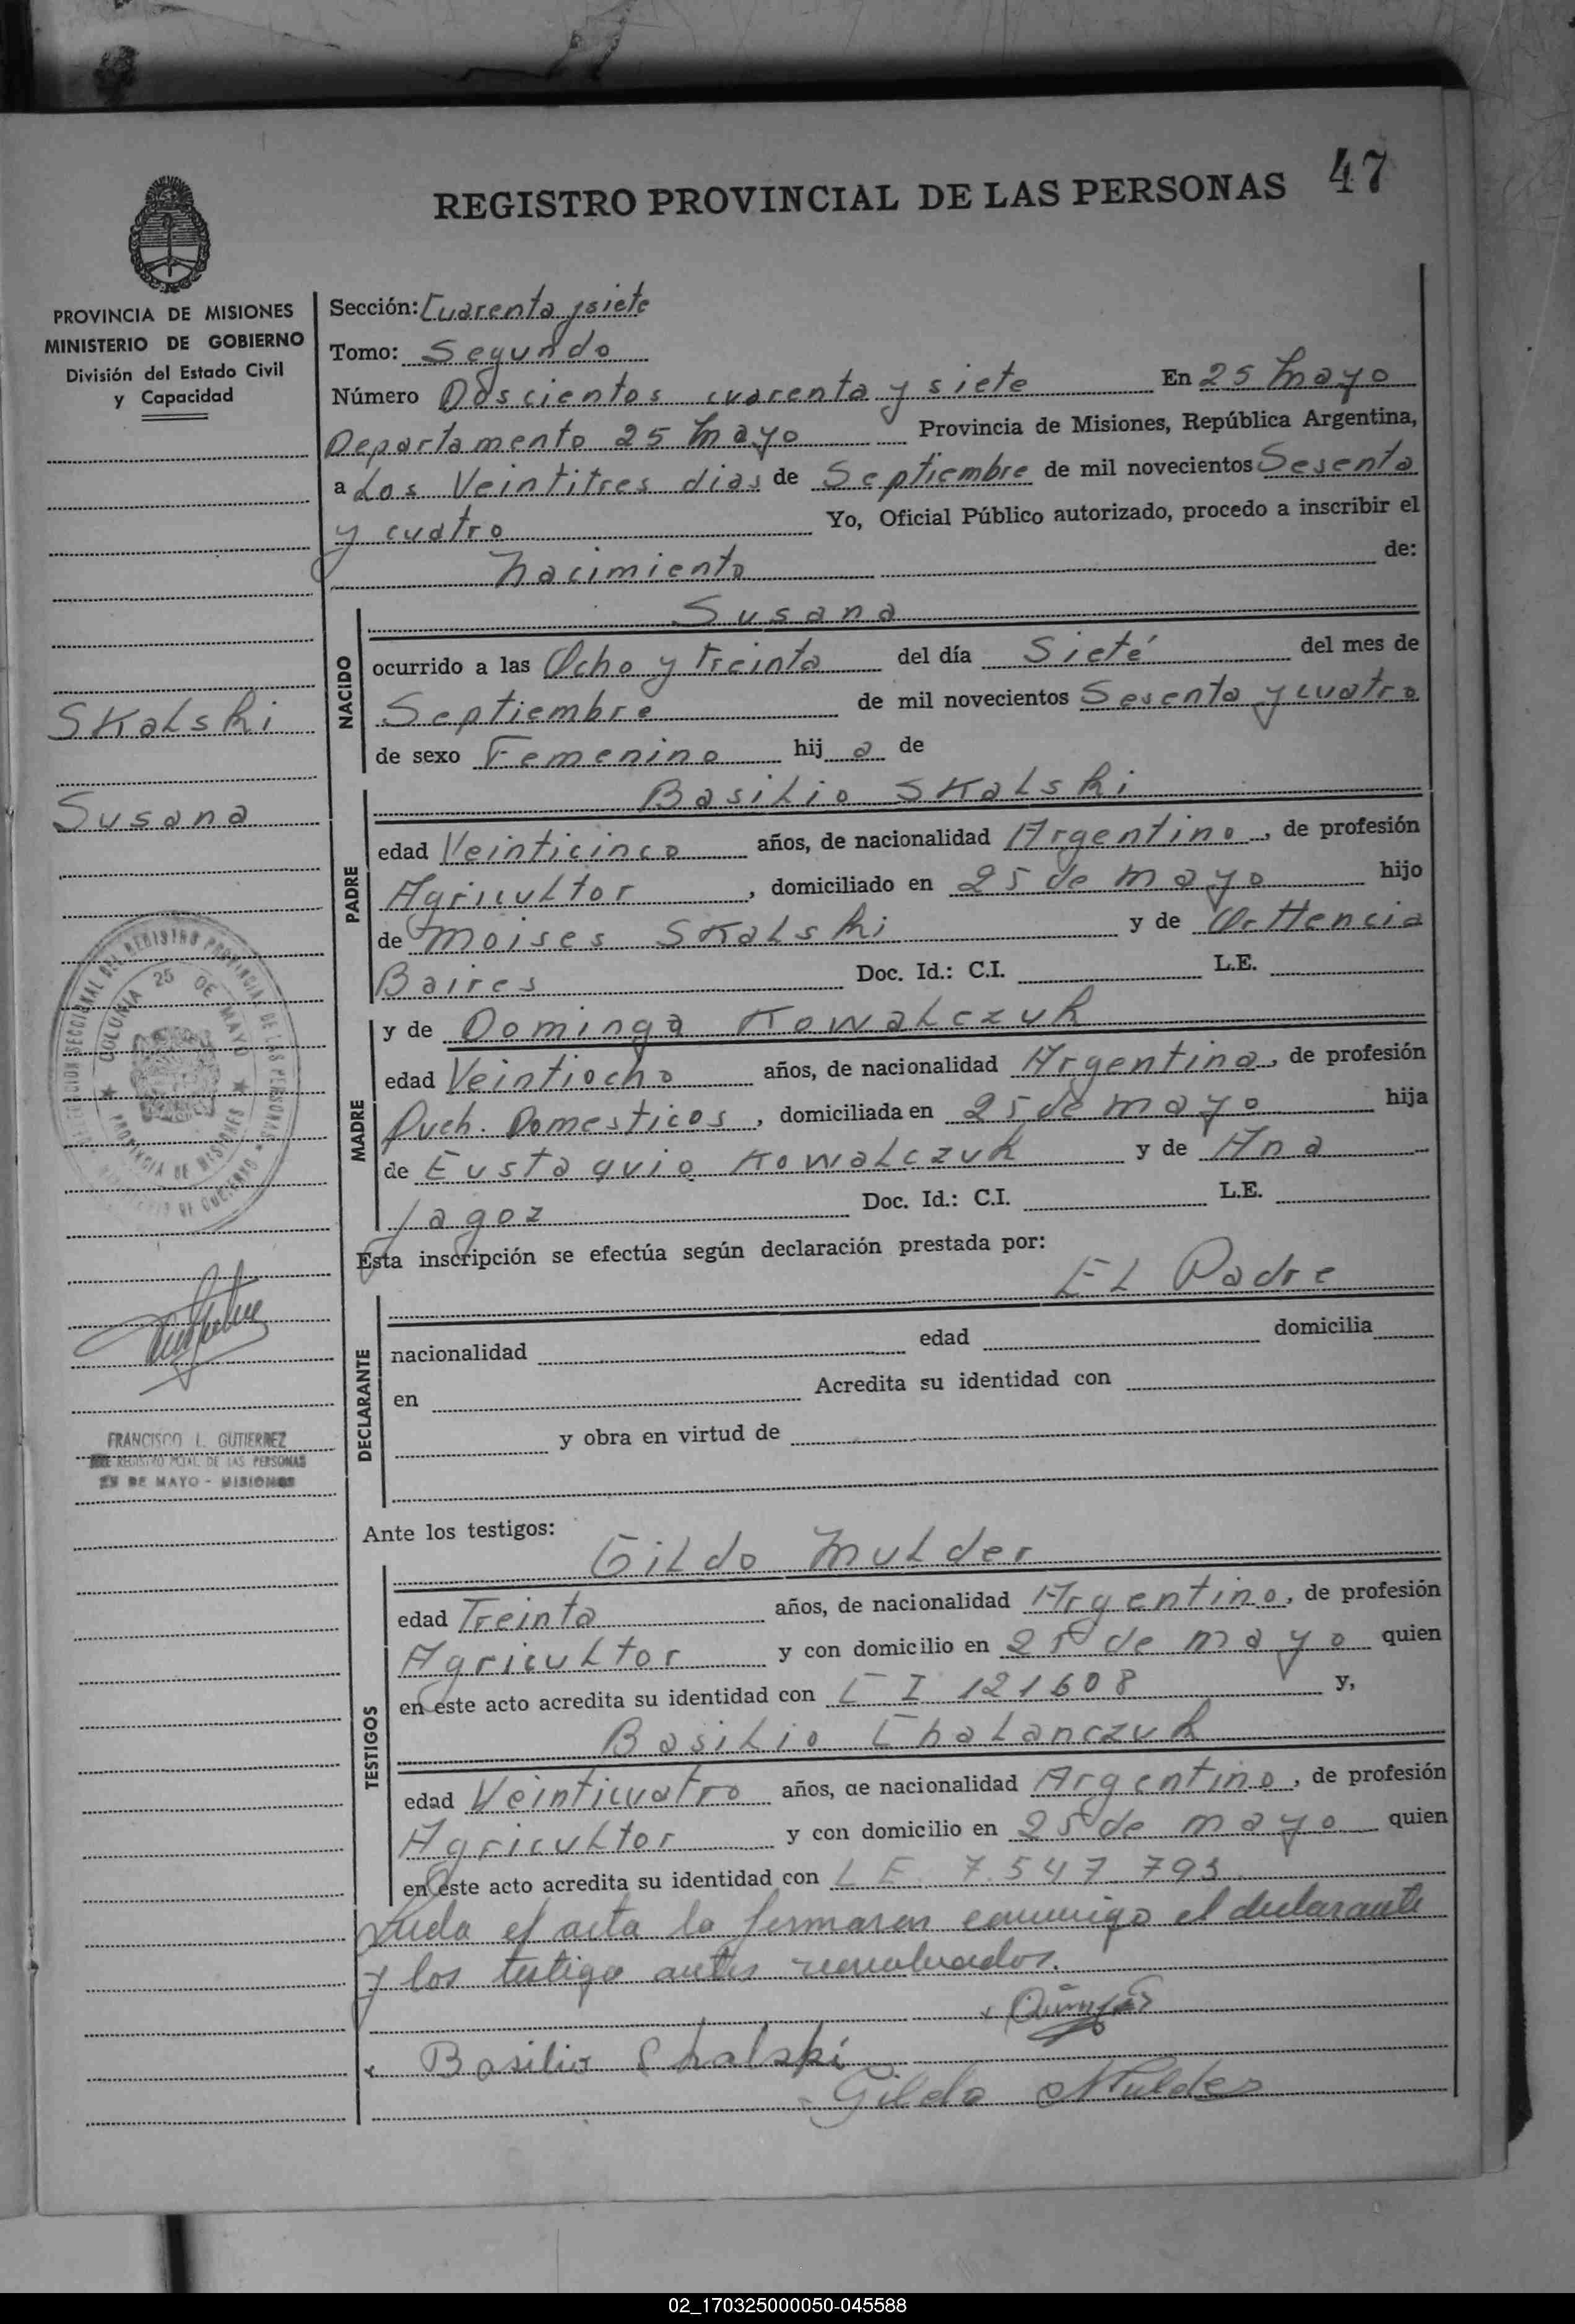 REGISTRO PROVINCIAL DE LAS PERSONAS 47
PROVINCIA DE MISIONES
MINISTERIO DE GOBIERNO
División del Estado Civil
y Capacidad
Skalski
Susana
COLONIA 25 DE MAYO
PROVINCIA DE MISIONES
FRANCISCO L. GUTIERREZ
REGISTRO PCIAL. DE LAS PERSONAS
25 DE MAYO - MISIONES
Sección: Cuarenta y siete
Tomo: Segundo
Número Doscientos cuarenta y siete En 25 Mayo
Departamento 25 Mayo Provincia de Misiones, República Argentina,
a Los Veintitres dias de Septiembre de mil novecientos Sesenta
y cuatro Yo, Oficial Público autorizado, procedo a inscribir el
Nacimiento de:
NACIDO
Susana
ocurrido a las Ocho y Treinta del día Sieté del mes de
Septiembre de mil novecientos Sesenta y cuatro
de sexo Femenino hij a de
PADRE
Basilio Skalski
edad Veinticinco años, de nacionalidad Argentino, de profesión
Agricultor, domiciliado en 25 de mayo hijo
de Moises Skalski y de Ortencia
Baires Doc. Id.: C.I. L.E.
MADRE
y de Dominga Kowalczuk
edad Veintiocho años, de nacionalidad Argentina, de profesión
Queh. Domesticos, domiciliada en 25 de mayo hija
de Eustaquio Kowalczuk y de Ana
Jagoz Doc. Id.: C.I. L.E.
Esta inscripción se efectúa según declaración prestada por:
DECLARANTE
El Padre
nacionalidad edad domicilia
en Acredita su identidad con
y obra en virtud de
Ante los testigos:
TESTIGOS
Gildo Mulder
edad Treinta años, de nacionalidad Argentino, de profesión
Agricultor y con domicilio en 25 de mayo quien
en este acto acredita su identidad con C I 121608 y,
Basilio Chalanczuk
edad Veinticuatro años, de nacionalidad Argentino, de profesión
Agricultor y con domicilio en 25 de mayo quien
en este acto acredita su identidad con L E 7.547.793
el acta la firmaron conmigo el declarante
y los testigo antes
Basilio Skalski
Gildo Mulder
02_170325000050-045588